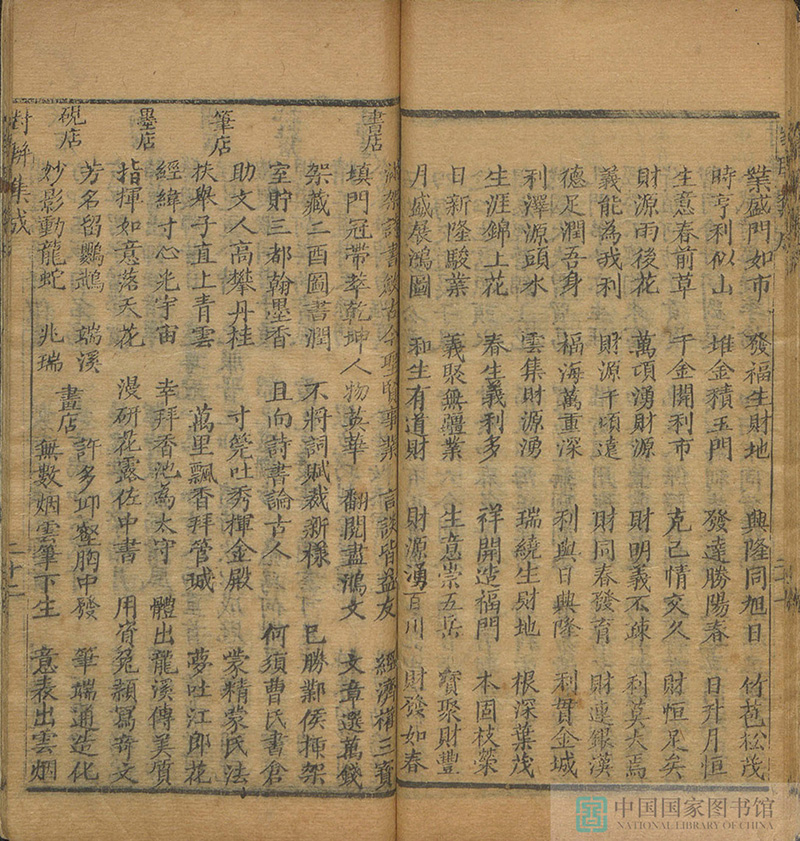 業盛門如市 發福生財地 興隆同旭日 竹苞松茂
時亨利似山 堆金積玉門 發達勝陽春 日升月恒
生意春前草 千金開利市 克己情交久 財恒足矣
財源雨後花 萬項湧財源 財明義不疎 利莫大焉
義能為我利 財源千頃遠 財同春發育 財連銀漢
德足潤吾身 福海萬重深 利與日興隆 利貫金城
利澤源頭水 雲集財源湧 瑞繞生財地 根深葉茂
生涯錦上花 春生義利多 祥開造福門 本固枝榮
日新隆駿業 義聚無疆業 生意崇五岳 寶聚財豐
月盛展鴻圖 和生有道財 財源湧百川 財發如春
書店
架 書 古今聖賢事業 言談皆益友 經濟稱三寶
填門冠帶萃乾坤人物英華 翻閱盡鴻文 文章選萬錢
架藏二酉圖書潤 不將詞賦裁新樣 已勝鄴侯揷架
室貯三都翰墨香 且向詩書論古人 何須曹氏書倉
筆店
助文人高攀丹桂 寸筦吐秀揮金殿 蒙精蒙氏法
扶舉子直上青雲 萬里飄香拜管城 夢吐江郎花
墨店
經緯寸心光宇宙 幸拜香池為太守 體出龍溪傳美質
指揮如意落天花 漫研花露佐中書 用資兔穎寫奇文
硯店
芳名留鸜鵒 端溪 畫店 許多邱壑胸中發 筆端通造化
妙影動龍蛇 兆瑞 無数烟雲筆下生 意表出雲烟
集成
二十二
中国国家图书馆
NATIONAL LIBRARY OF CHINA